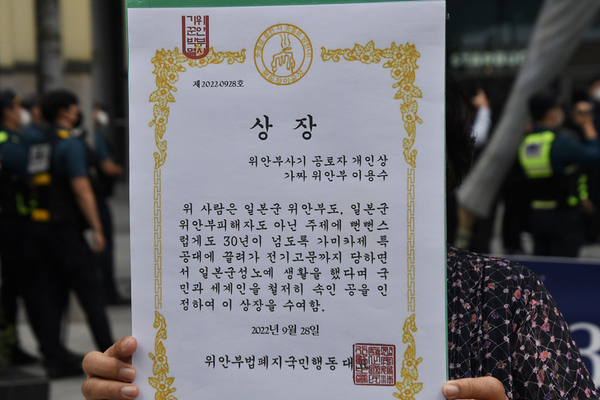 제 20220928호
상 장
위안부사기 공로자 개인상
가짜 위안부 이용수
위 사람은 일본군 위안부도, 일본군
위안부피해자도 아닌 주제에 뻔뻔스
럽게도 30년이 넘도록 가미카제 특
공대에 끌려가 전기고문까지 당하면
서 일본군성노예 생활을 했다며 국
민과 세계인을 철저히 속인 공을 인
정하여 이 상장을 수여함.
2022년 9월 28일
위안부법폐지국민행동 대표